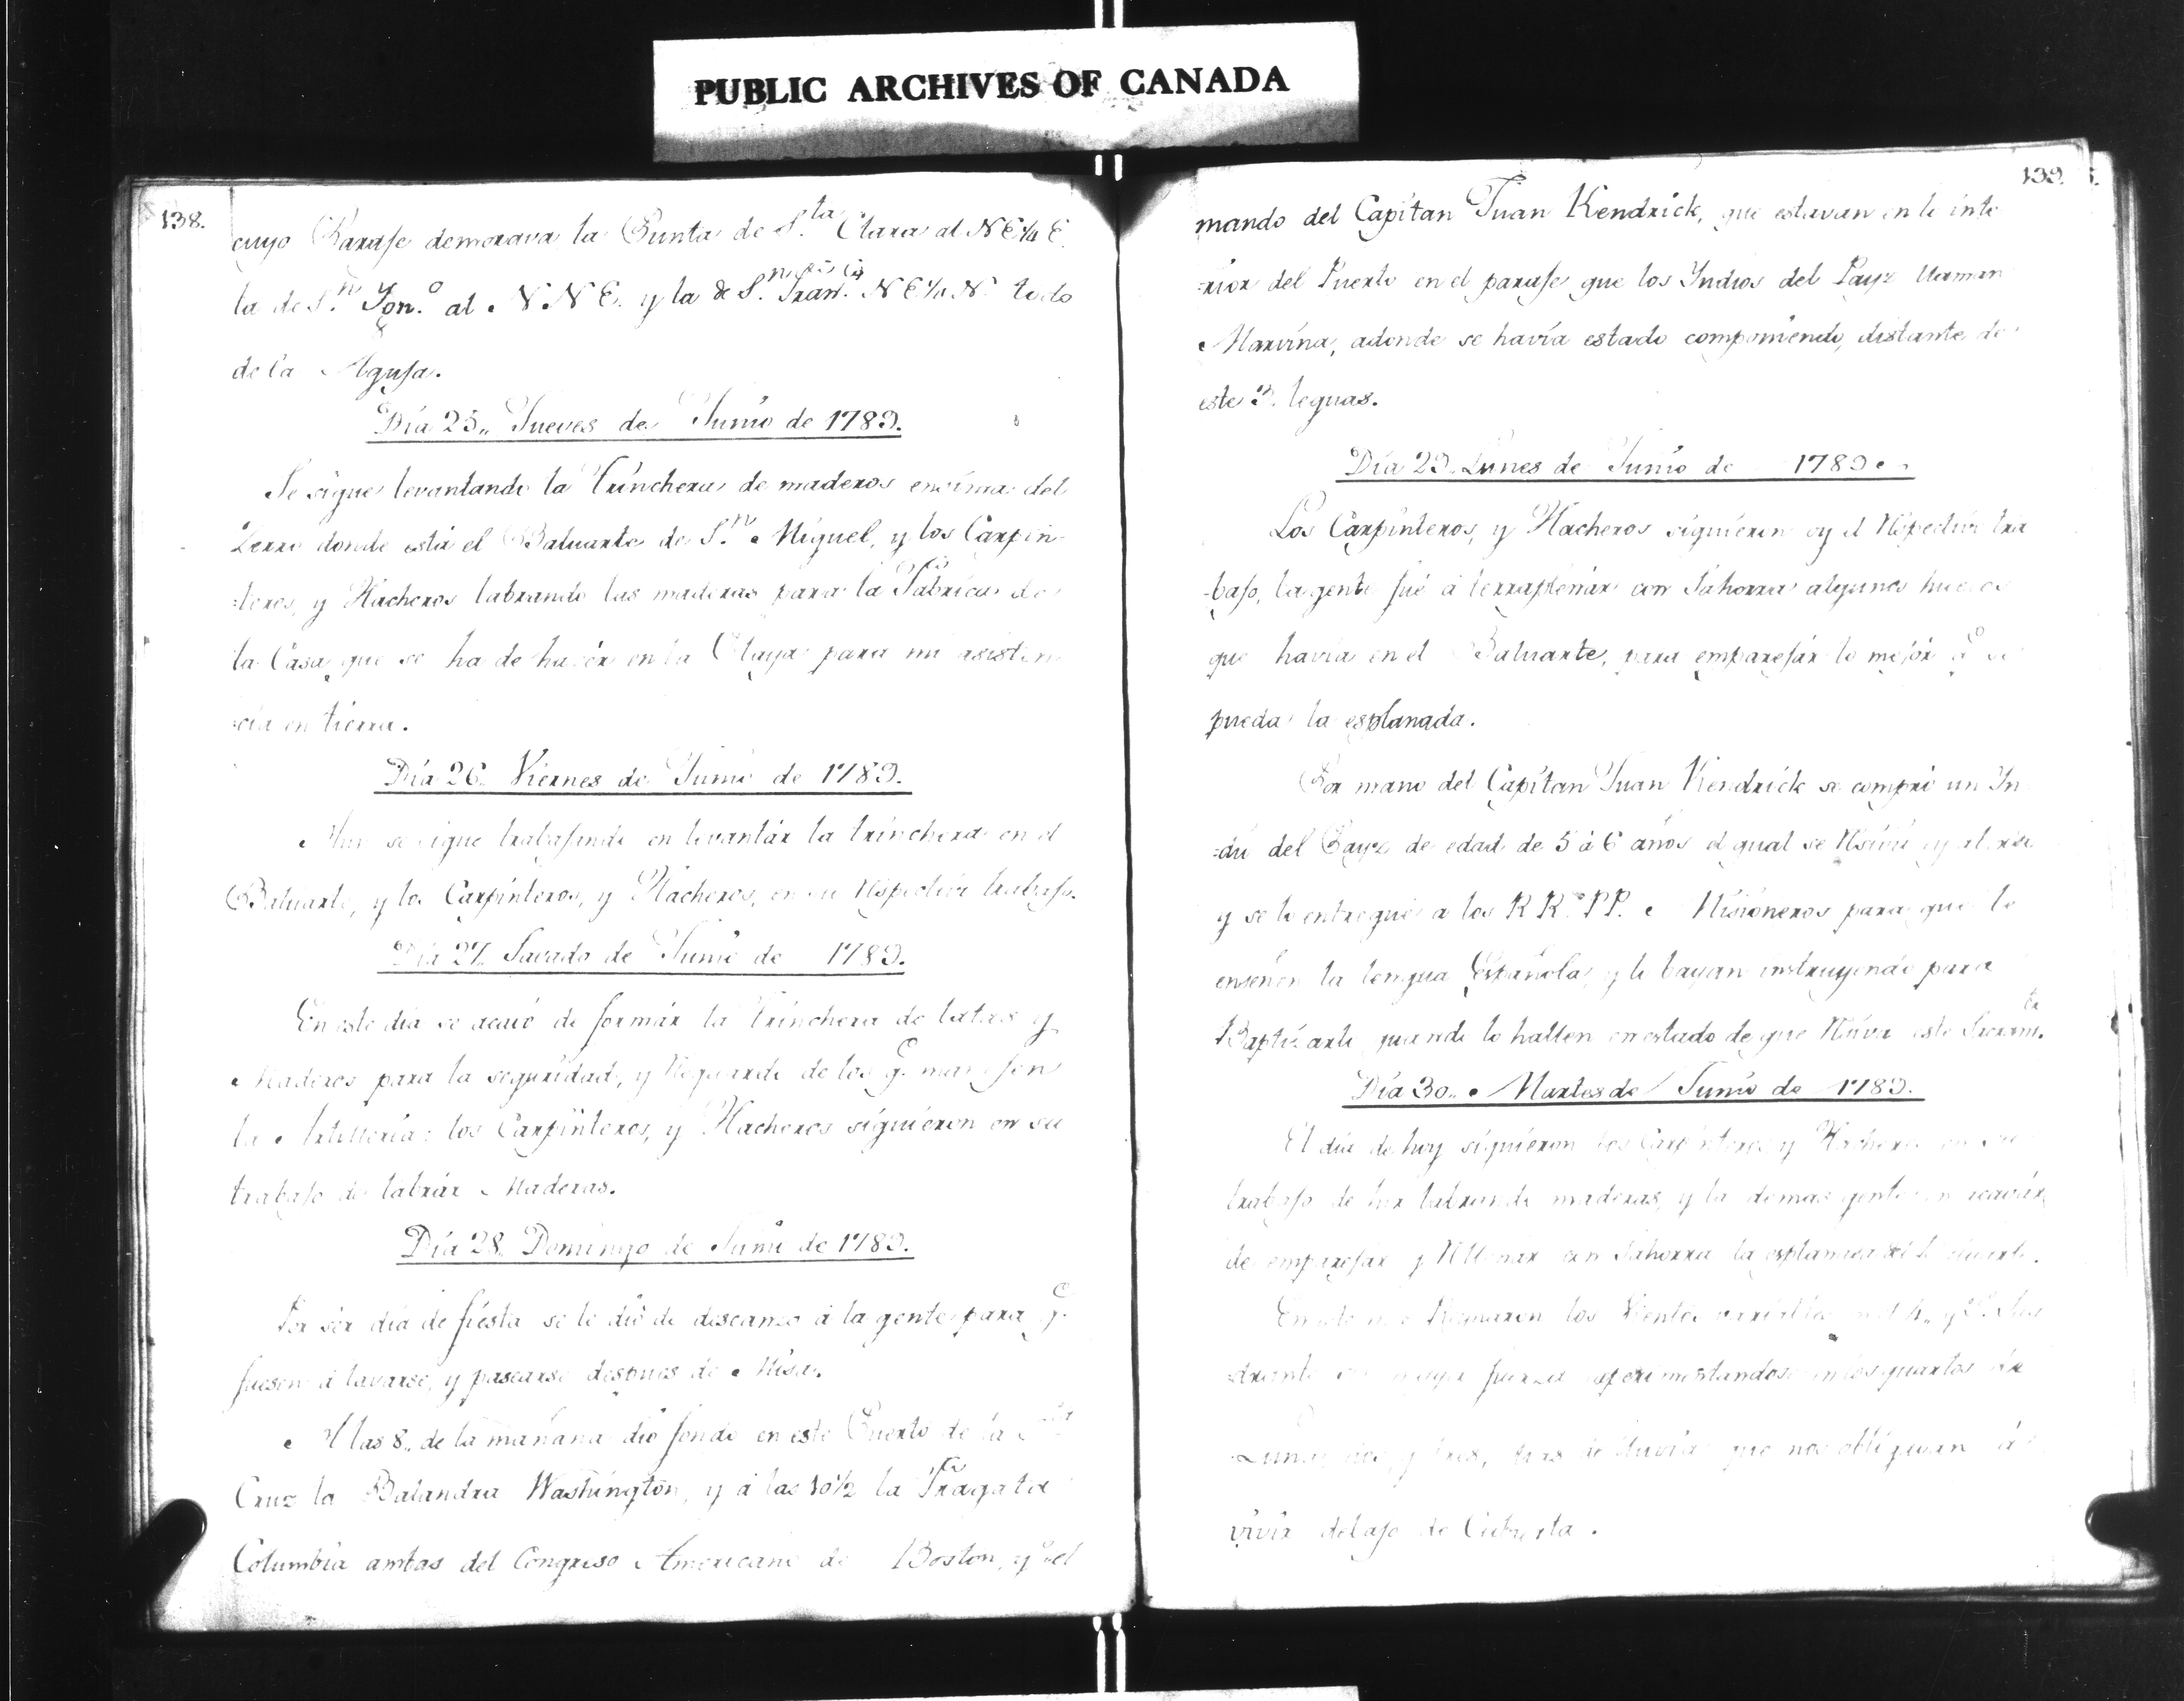 PUBLIC ARCHIVES OF CANADA
138.
cuyo Parage demorava la Punta de S.ta Clara al NE¼E.
la de S.n Ygn.o al NNE. y la de S.n Fran.co NE¼N. todo
de la Aguja.
Día 25,, Jueves de Junio de 1789.
Se sigue levantando la Trinchera de maderos encima del
Zerro donde está el Baluarte de S.n Miguel, y los Carpin-
=teros, y Hacheros labrando las maderas para la Fabrica de
la Casa que se ha de hacér en la Playa para mi asisten
=cia en tierra.
Día 26,, Viernes de Junio de 1789.
Aun se sigue trabajando en levantár la trinchera en el
Baluarte, y los Carpinteros, y Hacheros, en su Respectivo trabajo.
Día 27,, Savado de Junio de 1789.
En este día se acavó de formár la Trinchera de latas y
Maderos para la seguridad, y Resguardo de los q.e manejen
la Artilleria: los Carpinteros, y Hacheros siguieron en su
trabajo de labrár Maderas.
Día 28,, Domingo de Junio de 1789.
Por sér día de fiesta se le dió de descanso á la gente para q.e
fuesen á lavarse, y pasearse despues de Misa.
A las 8,, de la mañana dió fondo en este Puerto de la S.ta
Cruz la Balandra Washington, y á las 10½ la Fragata
Columbia ambas del Congreso Americano de Boston, y al
139.
mando del Capitan Juan Kendrick, que estavan en lo inte
=rior del Puerto en el parage que los Yndios del Payz llaman
Marvina, adonde se havía estado componiendo, distante de
este 3. leguas.
Día 29,, Lunes de Junio de 1789.
Los Carpinteros, y Hacheros siguieron oy el Respectivo tra
-bajo, la gente fué á terraplenár con Sahorra algunos huecos
que havia en el Baluarte, para emparejár lo mejór q.e se
pueda la esplanada.
Por mano del Capitan Juan Kendrick se compró un Yn
=dio del Payz de edad de 5 á 6 años el qual se
y se lo entregué a los RR.s PP. Misioneros para que le
enseñen la lengua Española, y le bayan instruyendo para
Baptizarlo quando lo hallen en estado de que Reciva este Sacram.to
Día 30,, Martes de Junio de 1789.
El día de hoy siguieron los Carpinteros y Hacheros en su
trabajo de labrando maderas, y la demas gente en acavár
de emparejar y Rellenár con Sahorra la esplanada del Baluarte.
En este mes Reynaron los Vientos variables
=drante mayor fuerza esperimentandose en los quartos de
Luna dos, y tres, dias de lluvia que nos obligavan á
vivir debajo de Cubierta.